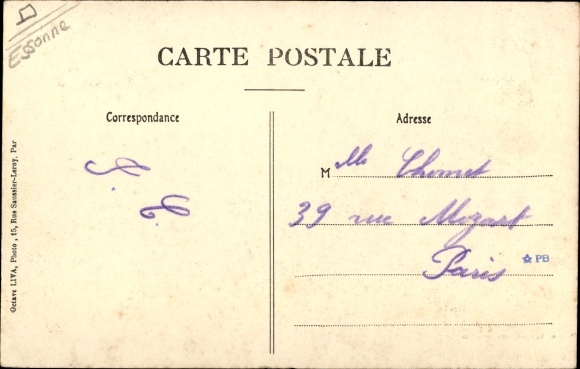 Essonne
CARTE POSTALE
Correspondance
Adresse
Mlle Thomet
39 rue Mozart
Paris
PB
Octave LIVA, Photo, 15, Rue Saussier-Leroy, Par